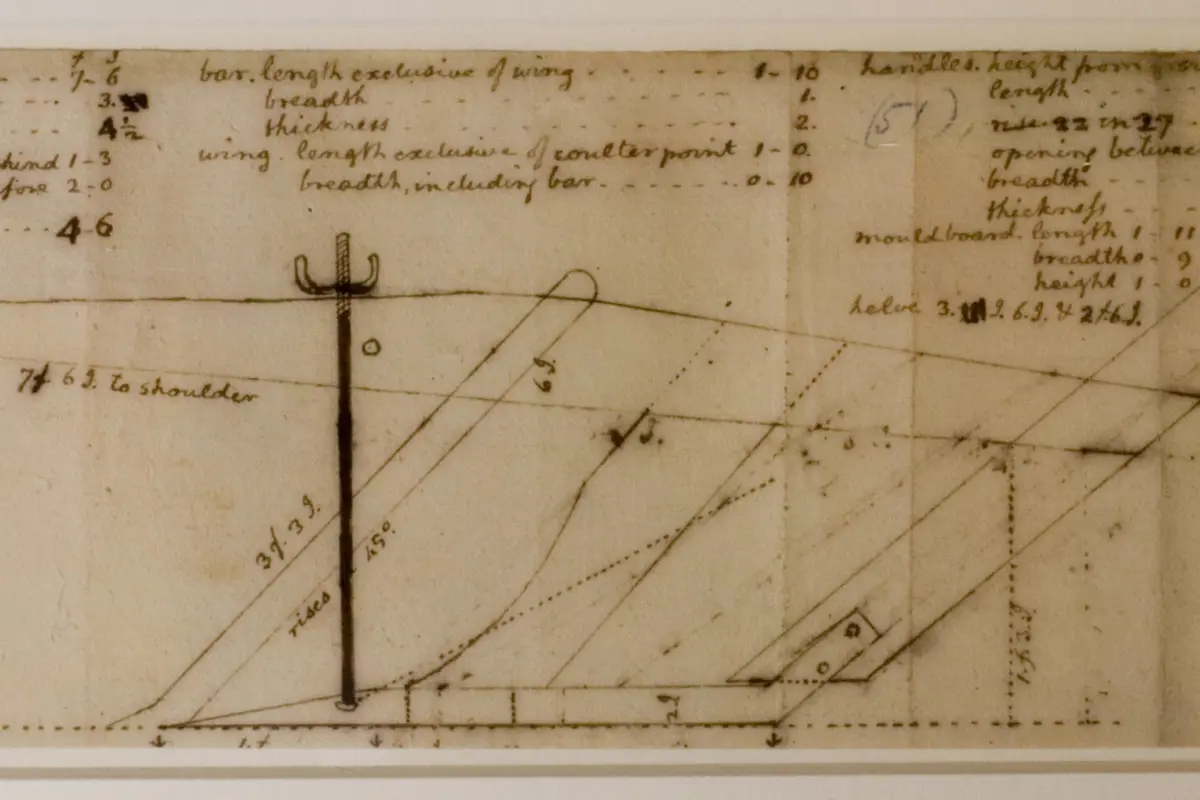 f J
7-6
3.
4½
hind 1-3
fore 2-0
4-6
bar. length exclusive of wing 1-10
breadth 1.
thickness 2.
wing. length exclusive of coulter point 1-0.
breadth, including bar. 0-10
handles. height from
length
(51)
rise 22 in 27
opening between
breadth
thickness
mouldboard. length 1-11
breadth 0-9
height 1-0
helve 3. I. 6.I. & 2f.6I.
7f 6 I. to shoulder
6 I.
3f. 3 I.
rises 45°.
2 I